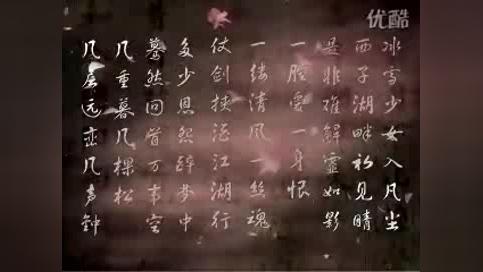 优酷
冰雪少女入凡尘
西子湖畔初见晴
是非难解虚如影
一腔爱一身恨
一缕清风一丝魂
仗剑挟酒江湖行
多少恩怨醉梦中
蓦然回首万事空
几重暮几棵松
几层远峦几声钟